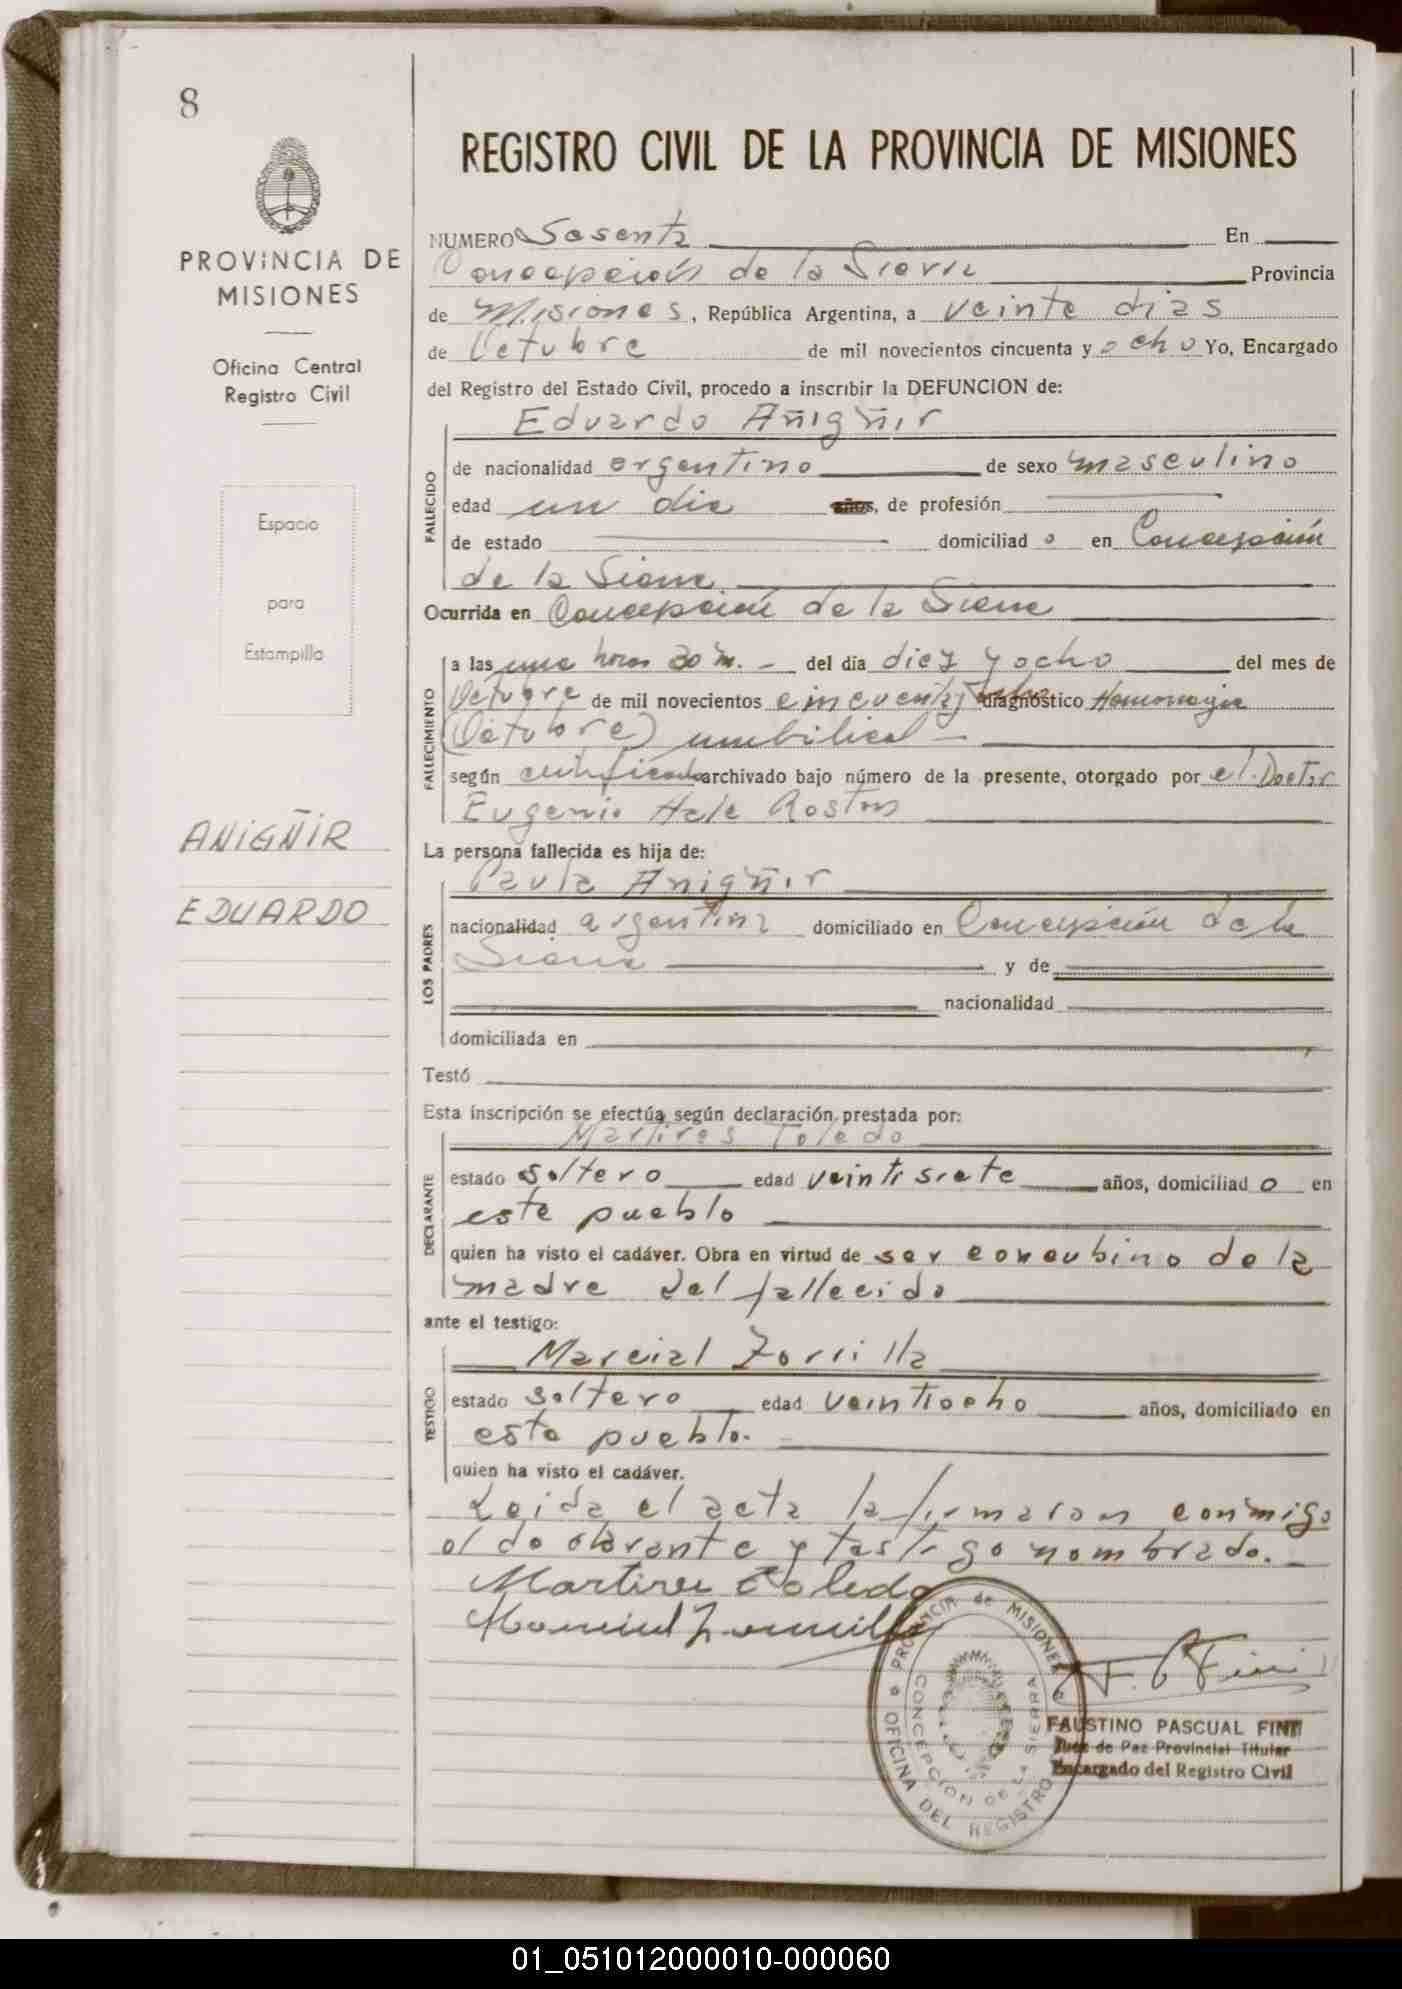 8
REGISTRO CIVIL DE LA PROVINCIA DE MISIONES
PROVINCIA DE
MISIONES
Oficina Central
Registro Civil
Espacio
para
Estampilla
ANIGÑIR
EDUARDO
NUMERO Sesenta En
Concepción de la Sierra Provincia
de Misiones, República Argentina, a veinte dias
de Octubre de mil novecientos cincuenta y ocho Yo, Encargado
del Registro del Estado Civil, procedo a inscribir la DEFUNCION de:
Eduardo Añigñir
FALLECIDO
de nacionalidad argentino de sexo masculino
edad un dia años, de profesión
de estado domiciliad o en Concepción
de la Sierra
Ocurrida en Concepción de la Sierra
FALLECIMIENTO
a las una horas 30 m. - del día diez y ocho del mes de
Octubre de mil novecientos cincuenta y ocho diagnóstico Hemorragia
(Octubre) umbilical -
según certificado archivado bajo número de la presente, otorgado por el Doctor
Eugenio Hale
La persona fallecida es hija de:
LOS PADRES
Paula Anigñir
nacionalidad argentina domiciliado en Concepción de la
Sierra y de
nacionalidad
domiciliada en
Testó
Esta inscripción se efectúa según declaración prestada por:
DECLARANTE
Martires Toledo
estado soltero edad veintisiete años, domiciliad o en
este pueblo
quien ha visto el cadáver. Obra en virtud de ser concubino de la
madre del fallecido
ante el testigo:
TESTIGO
Marcial Zorrilla
estado soltero edad veintiocho años, domiciliado en
este pueblo.
quien ha visto el cadáver.
Leida el acta la firmaron conmigo
el declarante y testigo nombrado. -
Martires Toledo
Marcial Zorrilla
F. P. Fini
PROVINCIA de MISIONES
OFICINA DEL REGISTRO
CONCEPCION DE LA SIERRA
FAUSTINO PASCUAL FINI
Juez de Paz Provincial Titular
Encargado del Registro Civil
01_051012000010-000060